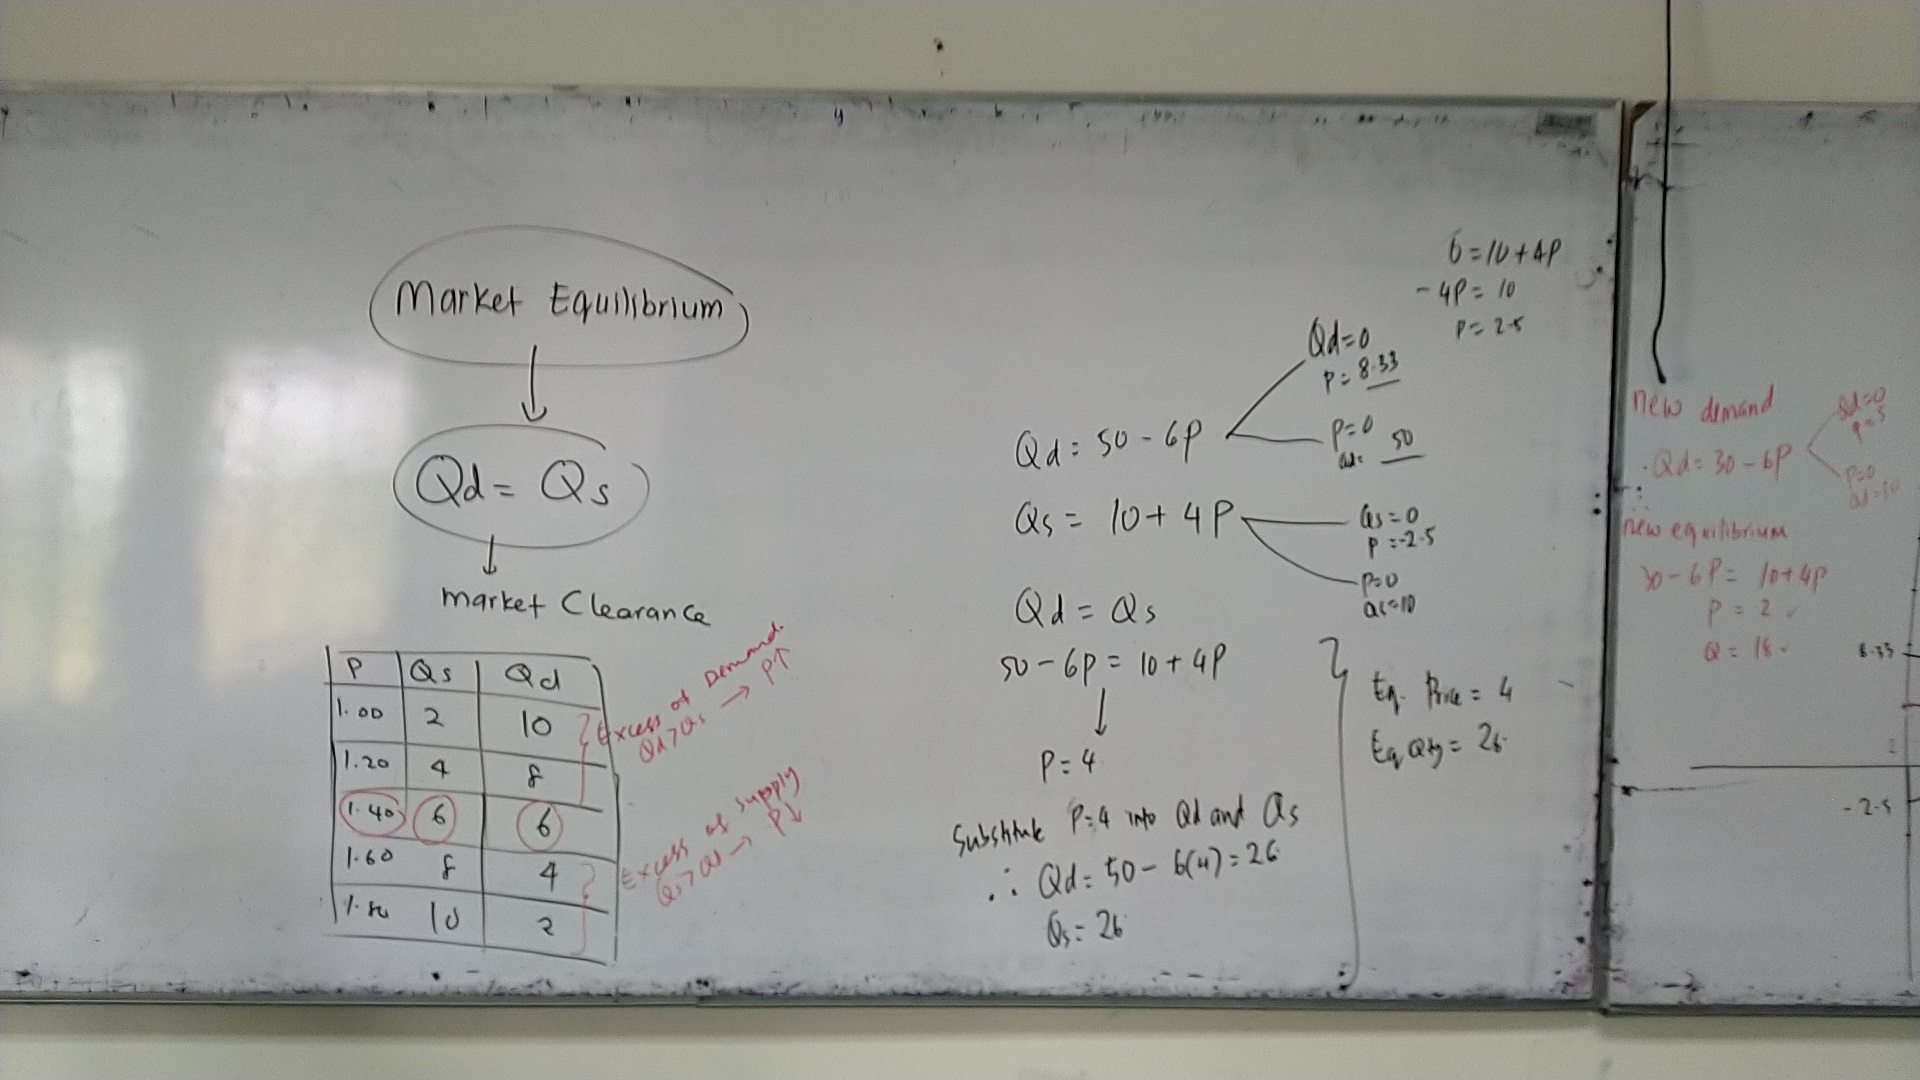 Market Equilibrium
Qd = Qs
market Clearance
P Qs Qd
1.00 2 10
1.20 4 8
1.40 6 6
1.60 8 4
1.80 10 2
Excess of Demand
Qd > Qs → P↑
Excess of Supply
Qs > Qd → P↓
0 = 10 + 4P
- 4P = 10
P = 2.5
Qd = 50 - 6P
Qd = 0
P = 8.33
P = 0
Qd = 50
Qs = 10 + 4P
Qs = 0
P = -2.5
P = 0
Qs = 10
Qd = Qs
50 - 6P = 10 + 4P
P = 4
Substitute P = 4 into Qd and Qs
∴ Qd = 50 - 6(4) = 26
Qs = 26
Eq. Price = 4
Eq Qty = 26
new demand
Qd = 30 - 6P
Qd = 0
P = 5
P = 0
Qd = 30
new equilibrium
30 - 6P = 10 + 4P
P = 2 ✓
Q = 18 ✓
8.33
2
-2.5